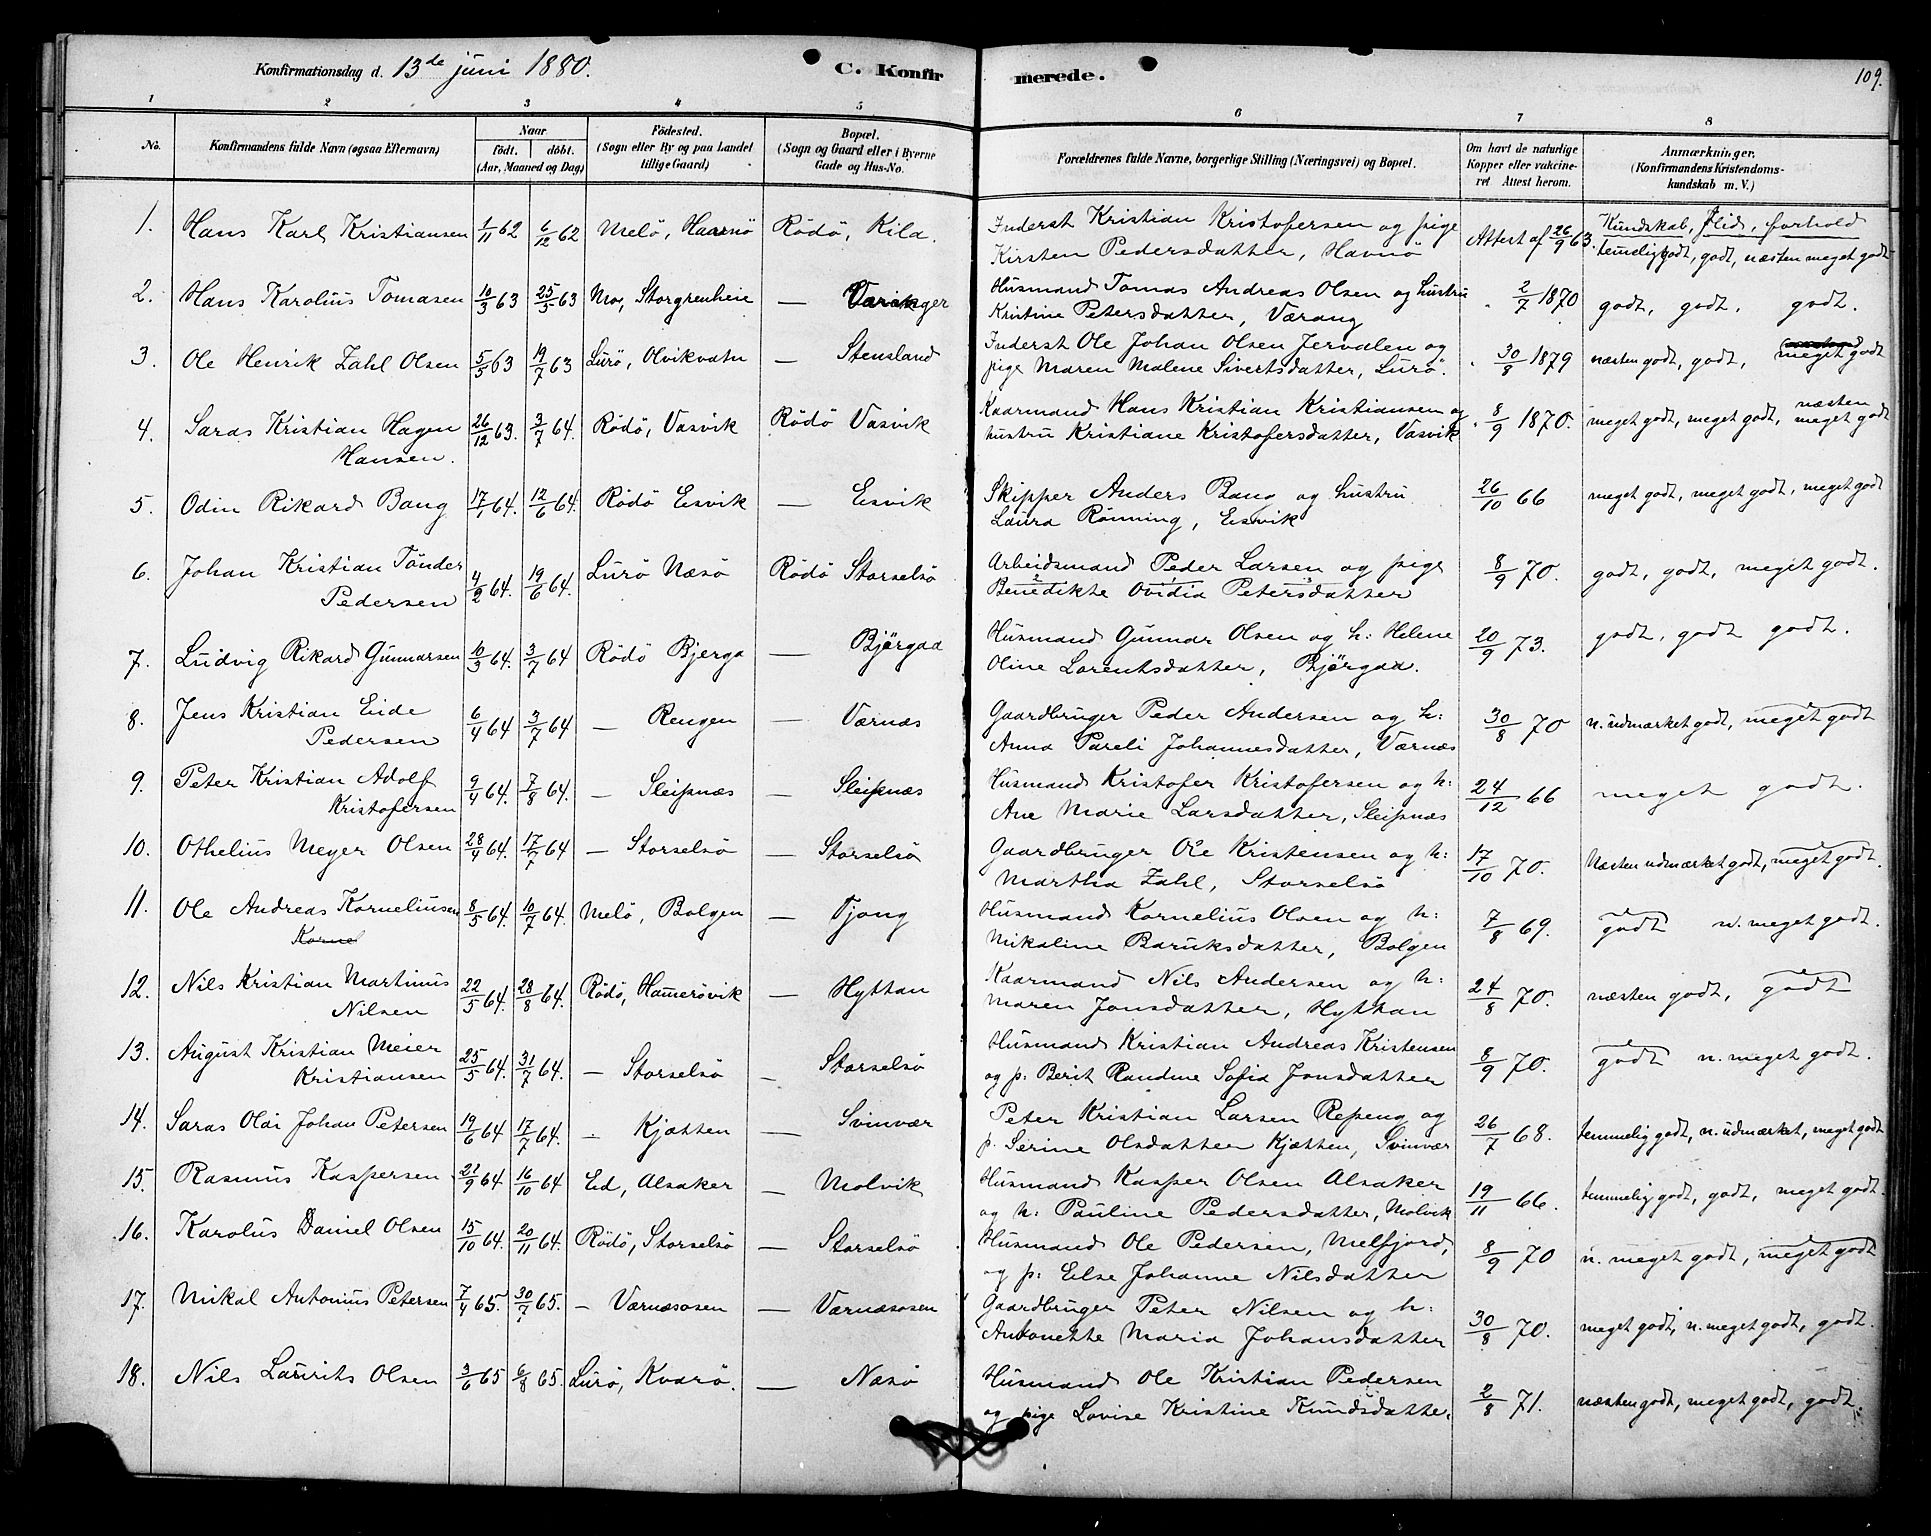 Konfirmationsdag d. 13de juni 1880.
C. Konfirmerede.
109.
1 2 3 4 5 6 7 8
No.
Konfirmandens fulde Navn (ogsaa Efternavn)
Naar
født. døbt.
(Aar, Maaned og Dag)
Fødested.
(Sogn eller By og paa Landet
tillige Gaard)
Bopæl.
(Sogn og Gaard eller i Byerne
Gade og Hus-No.
Forældrenes fulde Navne, borgerlige Stilling (Næringsvei) og Bopæl.
Om havt de naturlige
Kopper eller vakcineret
Attest herom.
Anmærkninger.
(Konfirmandens Kristendomskundskab
m. V.)
1. Hans Karl Kristiansen 1/11 62 6/12 62 Melö, Havnö Rödö, Kila. Inderst Kristian Kristofersen og pige Attest af 26/9 63. Kundskab, flid, forhold
Kirsten Pedersdatter, Havnö temmelig godt, godt, næsten meget godt
2. Hans Karolius Tomasen 10/3 63 25/5 63 Mo, Storgrenheie — Varanger Husmand Tomas Andreas Olsen og hustru 2/7 1870 godt, godt, godt.
Kristine Petersdatter, Værang
3. Ole Henrik Zahl Olsen 5/5 63 19/7 63 Lurö, Olvikvatn — Stensland Inderst Ole Johan Olsen Jervalen og 30/8 1879 næsten godt, godt, meget godt
pige Maren Malene Sivertsdatter, Lurö.
4. Saras Kristian Hagen 26/12 63. 3/7 64. Rödö, Vasvik Rödö Vasvik Kaarmand Hans Kristian Kristiansen og 8/9 1870. meget godt, meget godt, næsten meget godt
Hansen. hustru Kristiane Kristofersdatter, Vasvik
5. Odin Rikard Bang 17/1 64. 12/6 64. Rödö Esvik — Esvik Skipper Anders Bang og hustru 26/10 66 meget godt, meget godt, meget godt
Laura Rönning, Esvik
6. Johan Kristian Tönder 4/2 64. 19/6 64. Lurö Næsö Rödö Storselsö Arbeidsmand Peder Larsen og pige 8/9 70. godt, godt, meget godt.
Pedersen Benedikte Ovidia Petersdatter
7. Ludvig Rikard Gunnarsen 10/3 64. 3/7 64 Rödö Bjerga — Bjørgaa Husmand Gunnar Olsen og h: Helene 20/9 73. godt, godt godt.
Oline Lorentsdatter, Bjørgaa.
8. Jens Kristian Eide 6/4 64 3/7 64 — Rengen — Værnæs Gaardbruger Peder Andersen og h: 30/8 70 n. udmærket godt, meget godt
Pedersen Anna Pareli Johannesdatter, Værnæs
9. Peter Kristian Adolf 9/4 64. 7/8 64. — Sleipnæs — Sleipnæs Husmand Kristofer Kristofersen og h: 24/12 66 meget godt.
Kristofersen Ane Marie Larsdatter, Sleipnæs
10. Othelius Meyer Olsen 28/4 64. 17/7 64 — Storselsö — Storselsö Gaardbruger Ole Kristensen og h: 17/10 70. Næsten udmærket godt, meget godt.
Martha Zahl, Storselsö
11. Ole Andreas Korneliusen 8/5 64. 10/7 64. Melö, Bolgen — Tjong Husmand Kornelius Olsen og h: 7/8 69. godt n. meget godt.
Korne Nikoline Baruksdatter, Bolgen
12. Nils Kristian Martinus 22/5 64. 28/8 64. Rödö, Hamerövik — Hyttan Kaarmand Nils Andersen og h: 24/8 70. næsten godt, godt
Nilsen Maren Jonsdatter, Hyttan
13. August Kristian Meier 25/5 64. 31/7 64. — Storselsö — Storselsö Husmand Kristian Andreas Kristensen 8/9 70. godt n. meget godt.
Kristiansen og p: Berit Randine Sofia Jonsdatter
14. Saras Olai Johan Petersen 19/6 64 17/7 64. — Kjætten — Svinvær Peter Kristian Larsen Repeng og 26/7 68. temmelig godt, n. udmærket, meget godt
p. Serine Olsdatter Kjætten, Svinvær
15. Rasmus Kaspersen 21/9 64 16/10 64 Eid, Alsaker — Molvik Husmand Kasper Olsen Alsaker 19/11 66. temmelig godt, godt, meget godt.
og h: Pauline Pedersdatter, Molvik
16. Karolus Daniel Olsen 15/10 64. 20/11 64. Rödö, Storselsö — Storselsö Husmand Ole Pedersen, Melfjord, 8/9 70 n. meget godt, meget godt
og p: Else Johanne Nilsdatter
17. Mikal Antonius Petersen 7/4 65. 30/7 65. — Værnæsosen — Værnæsosen Gaardbruger Peter Nilsen og h: 30/8 70. meget godt, n. meget godt, godt.
Antonette Maria Johansdatter
18. Nils Laurits Olsen 3/6 65 6/8 65. Lurö, Kvarö. — Næsö Husmand Ole Kristian Pedersen 2/8 71. næsten godt, meget godt, godt.
og pige Lovise Kristine Knudsdatter